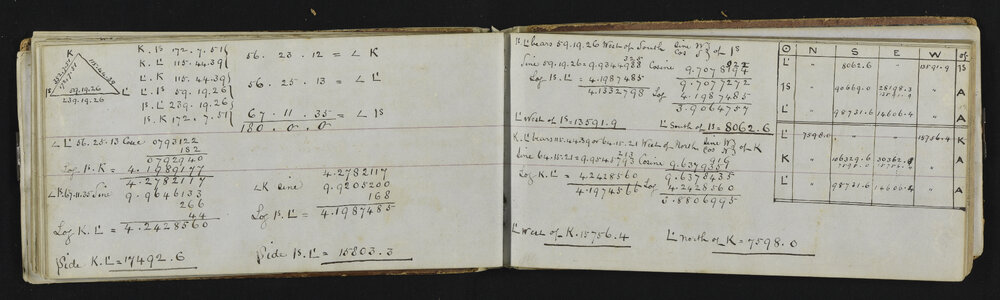 K
B
L'
59.19.26
239.19.26
K.B 172.7.51
K.L' 115.44.39
56.23.12 = ∠ K
L'.K 115.44.39
L'.B 59.19.26
56.25.13 = ∠ L'
B.L' 239.19.26
B.K 172.7.51
67.11.35 = ∠ B
180.0.0
∠ L' 56.25.13 Csec 0793122
182
0792940
Log B.K = 4.1989177
4.2782117
∠B 67.11.35 Sine 9.9646133
266
44
Log K.L' = 4.2428560
Side K.L' = 17492.6
4.2782117
∠K Sine 9.9205200
168
Log B.L' = 4.1987485
Side B.L' = 15803.3
B.L' bears 59.19.26 West of South Sine W Cos S of B
Sine 59.19.26 = 9.9344988 Cosine 9.7078194
Log B.L' = 4.1987485 9.7077272
4.1332798 Log 4.1987485
3.9064757
L' West of B = 13591.9 L' South of B = 8062.6
K.L' bears 115.44.39 or 64.15.21 West of North Sine W Cos N of K
Sine 64.15.21 = 9.9545 Cosine
Log K.L' = 4.2428560 9.6378435
4.1974566 Log 4.2428560
3.8806995
L' West of K = 15756.4 L' North of K = 7598.0
⊙ N S E W of
L' " 8062.6 " 13591.9 B
B " 90669.0 28198.3 " A
13591.9
L' " 98731.6 14606.4 " A
L' 7598.0 " " 15756.4 K
K " 106329.6 30362.8 " A
7598.0 15756.4
L' " 98731.6 14606.4 " A